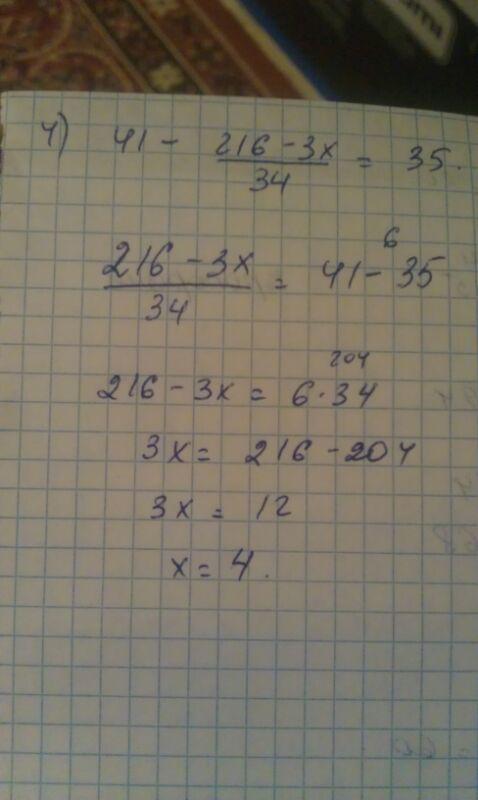 4) 41 - 216 - 3x / 34 = 35.
216 - 3x / 34 = 41 - 35 6
216 - 3x = 6 · 34 204
3x = 216 - 204
3x = 12
x = 4.